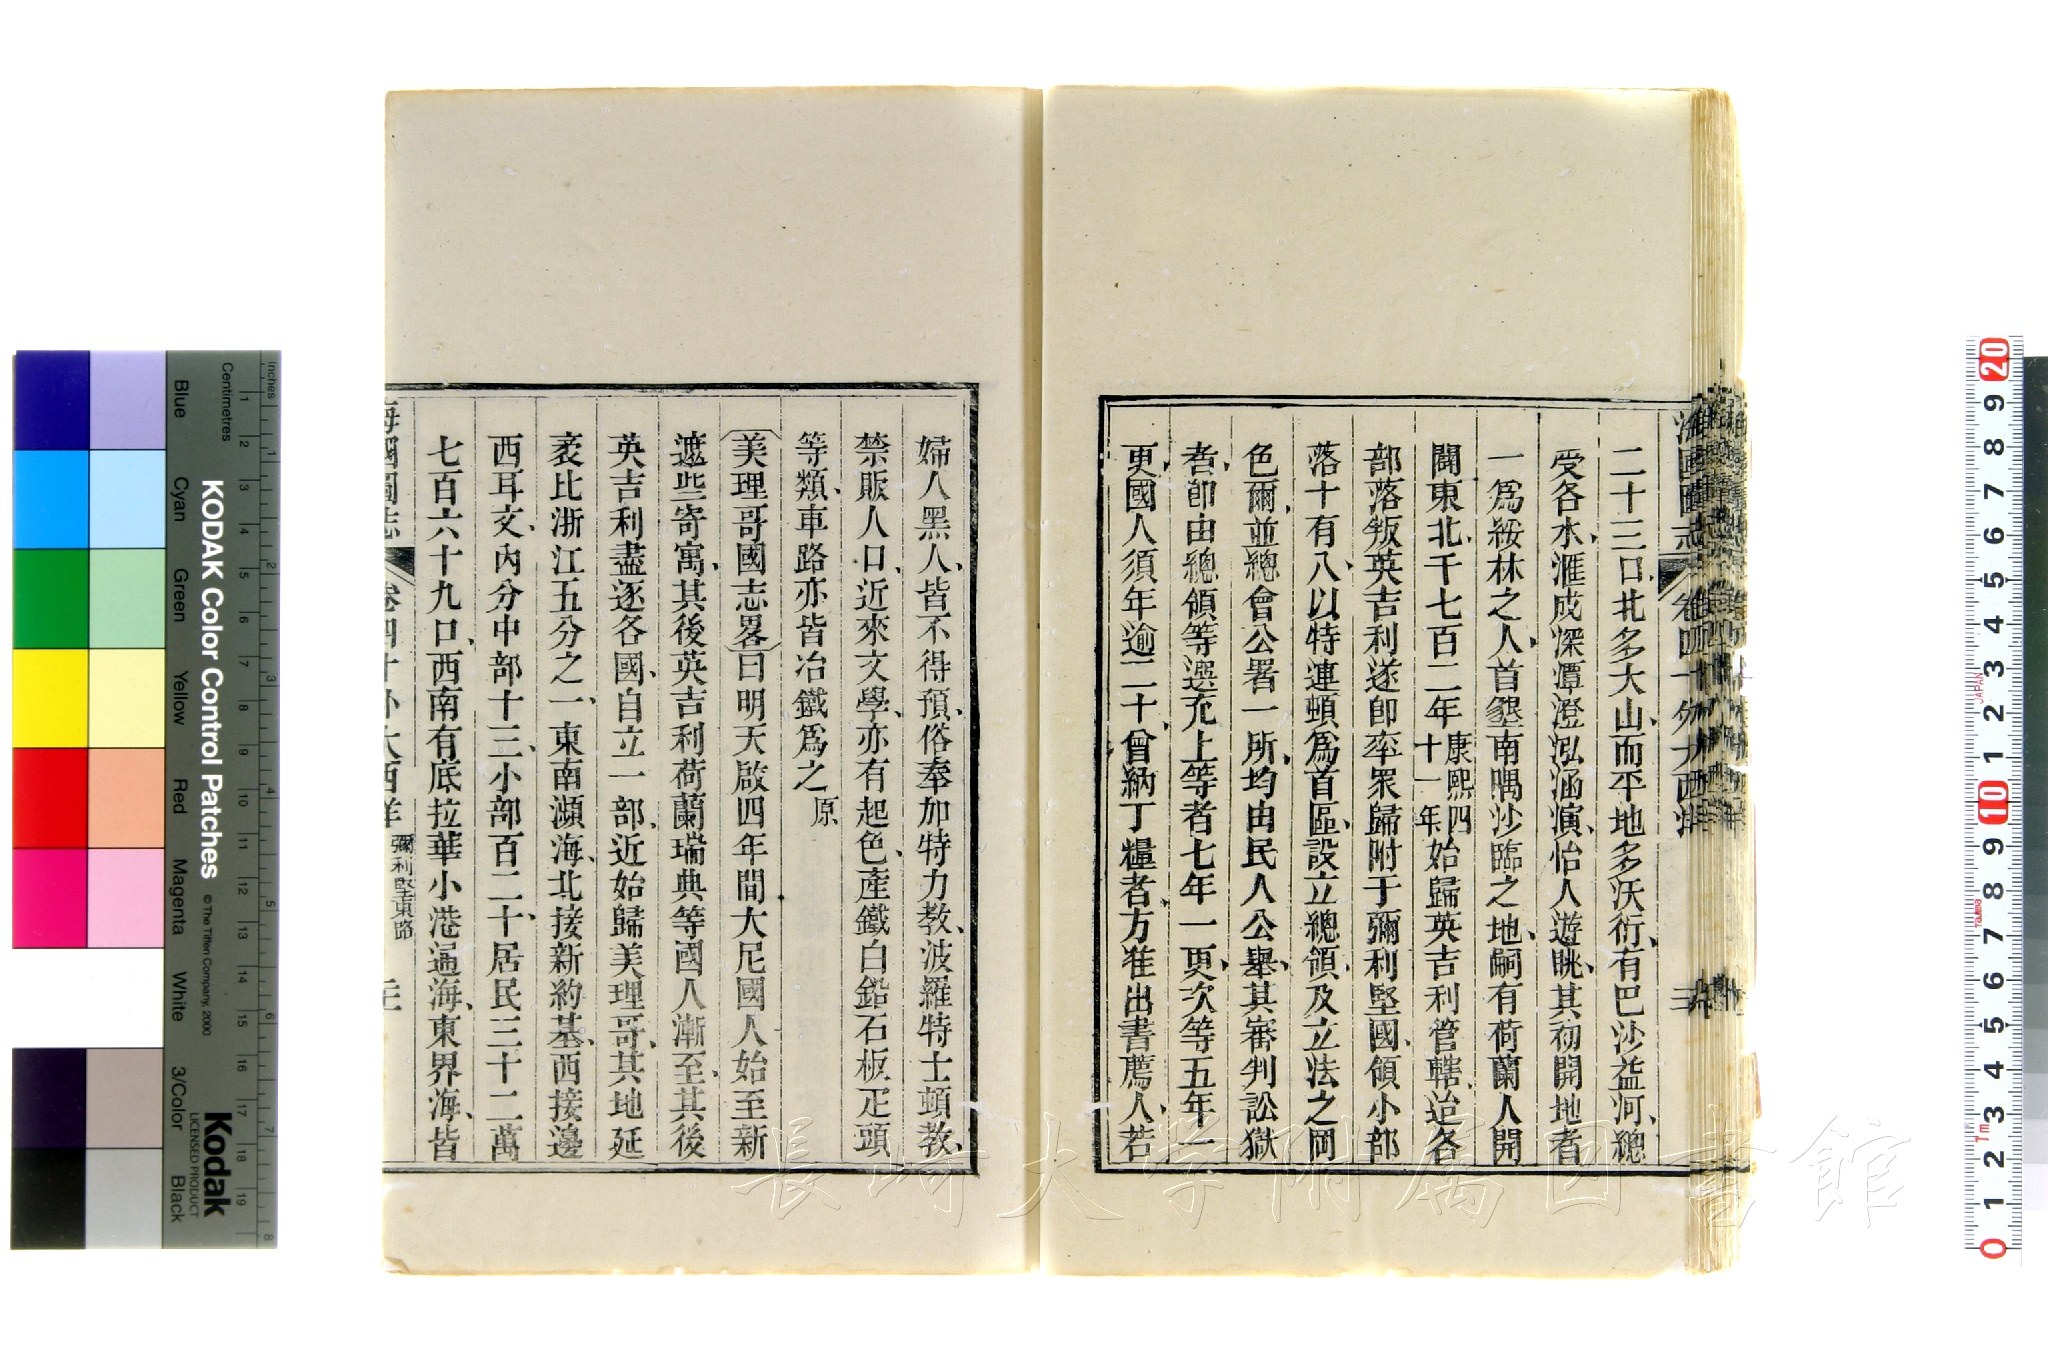 海國圖志 卷四十 外大西洋
二十三口、北多大山、而平地多沃衍、有巴沙益河、總
受各水、滙成深潭、澄泓涵演、怡人遊眺、其初開地者
一爲綏林之人、首墾南隅沙臨之地、嗣有荷蘭人開
闢東北、千七百二年康熙四十一年始歸英吉利管轄、迨各
部落叛英吉利、遂卽率眾歸附于彌利堅國、領小部
落十有八、以特連頓爲首區、設立總領、及立法之岡
色爾、並總會公署一所、均由民人公舉、其審判訟獄
者、卽由總領等選充、上等者七年一更、次等五年一
更、國人須年逾二十、曾納丁糧者、方准出書薦人、若
婦人黑人、皆不得預、俗奉加特力教、波羅特士頓教、
禁販人口、近來文學、亦有起色、產鐵白鉛石板疋頭
等類、車路亦皆冶鐵爲之 原
美理哥國志畧曰明天啟四年間大尼國人始至新
遮些寄寓、其後英吉利荷蘭瑞典等國人漸至、其後
英吉利盡逐各國、自立一部、近始歸美理哥、其地延
袤比浙江五分之一、東南瀕海、北接新約基、西接邊
西耳文、內分中部十三、小部百二十、居民三十二萬
七百六十九口、西南有底拉華小港通海、東界海、皆
海國圖志 卷四十 外大西洋 彌利堅東路